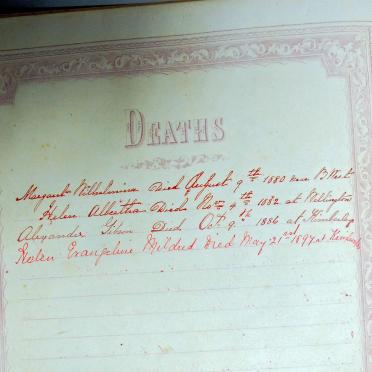 DEATHS
Margaret Wilhelmina Died August 9th 1880 near
Helen Albertha Died Novr 4th 1882 at Wellington
Alexander Gibson Died Oct 9th 1886 at Kimberley
Helen Evangeline Mildred Died May 21st 1897 at